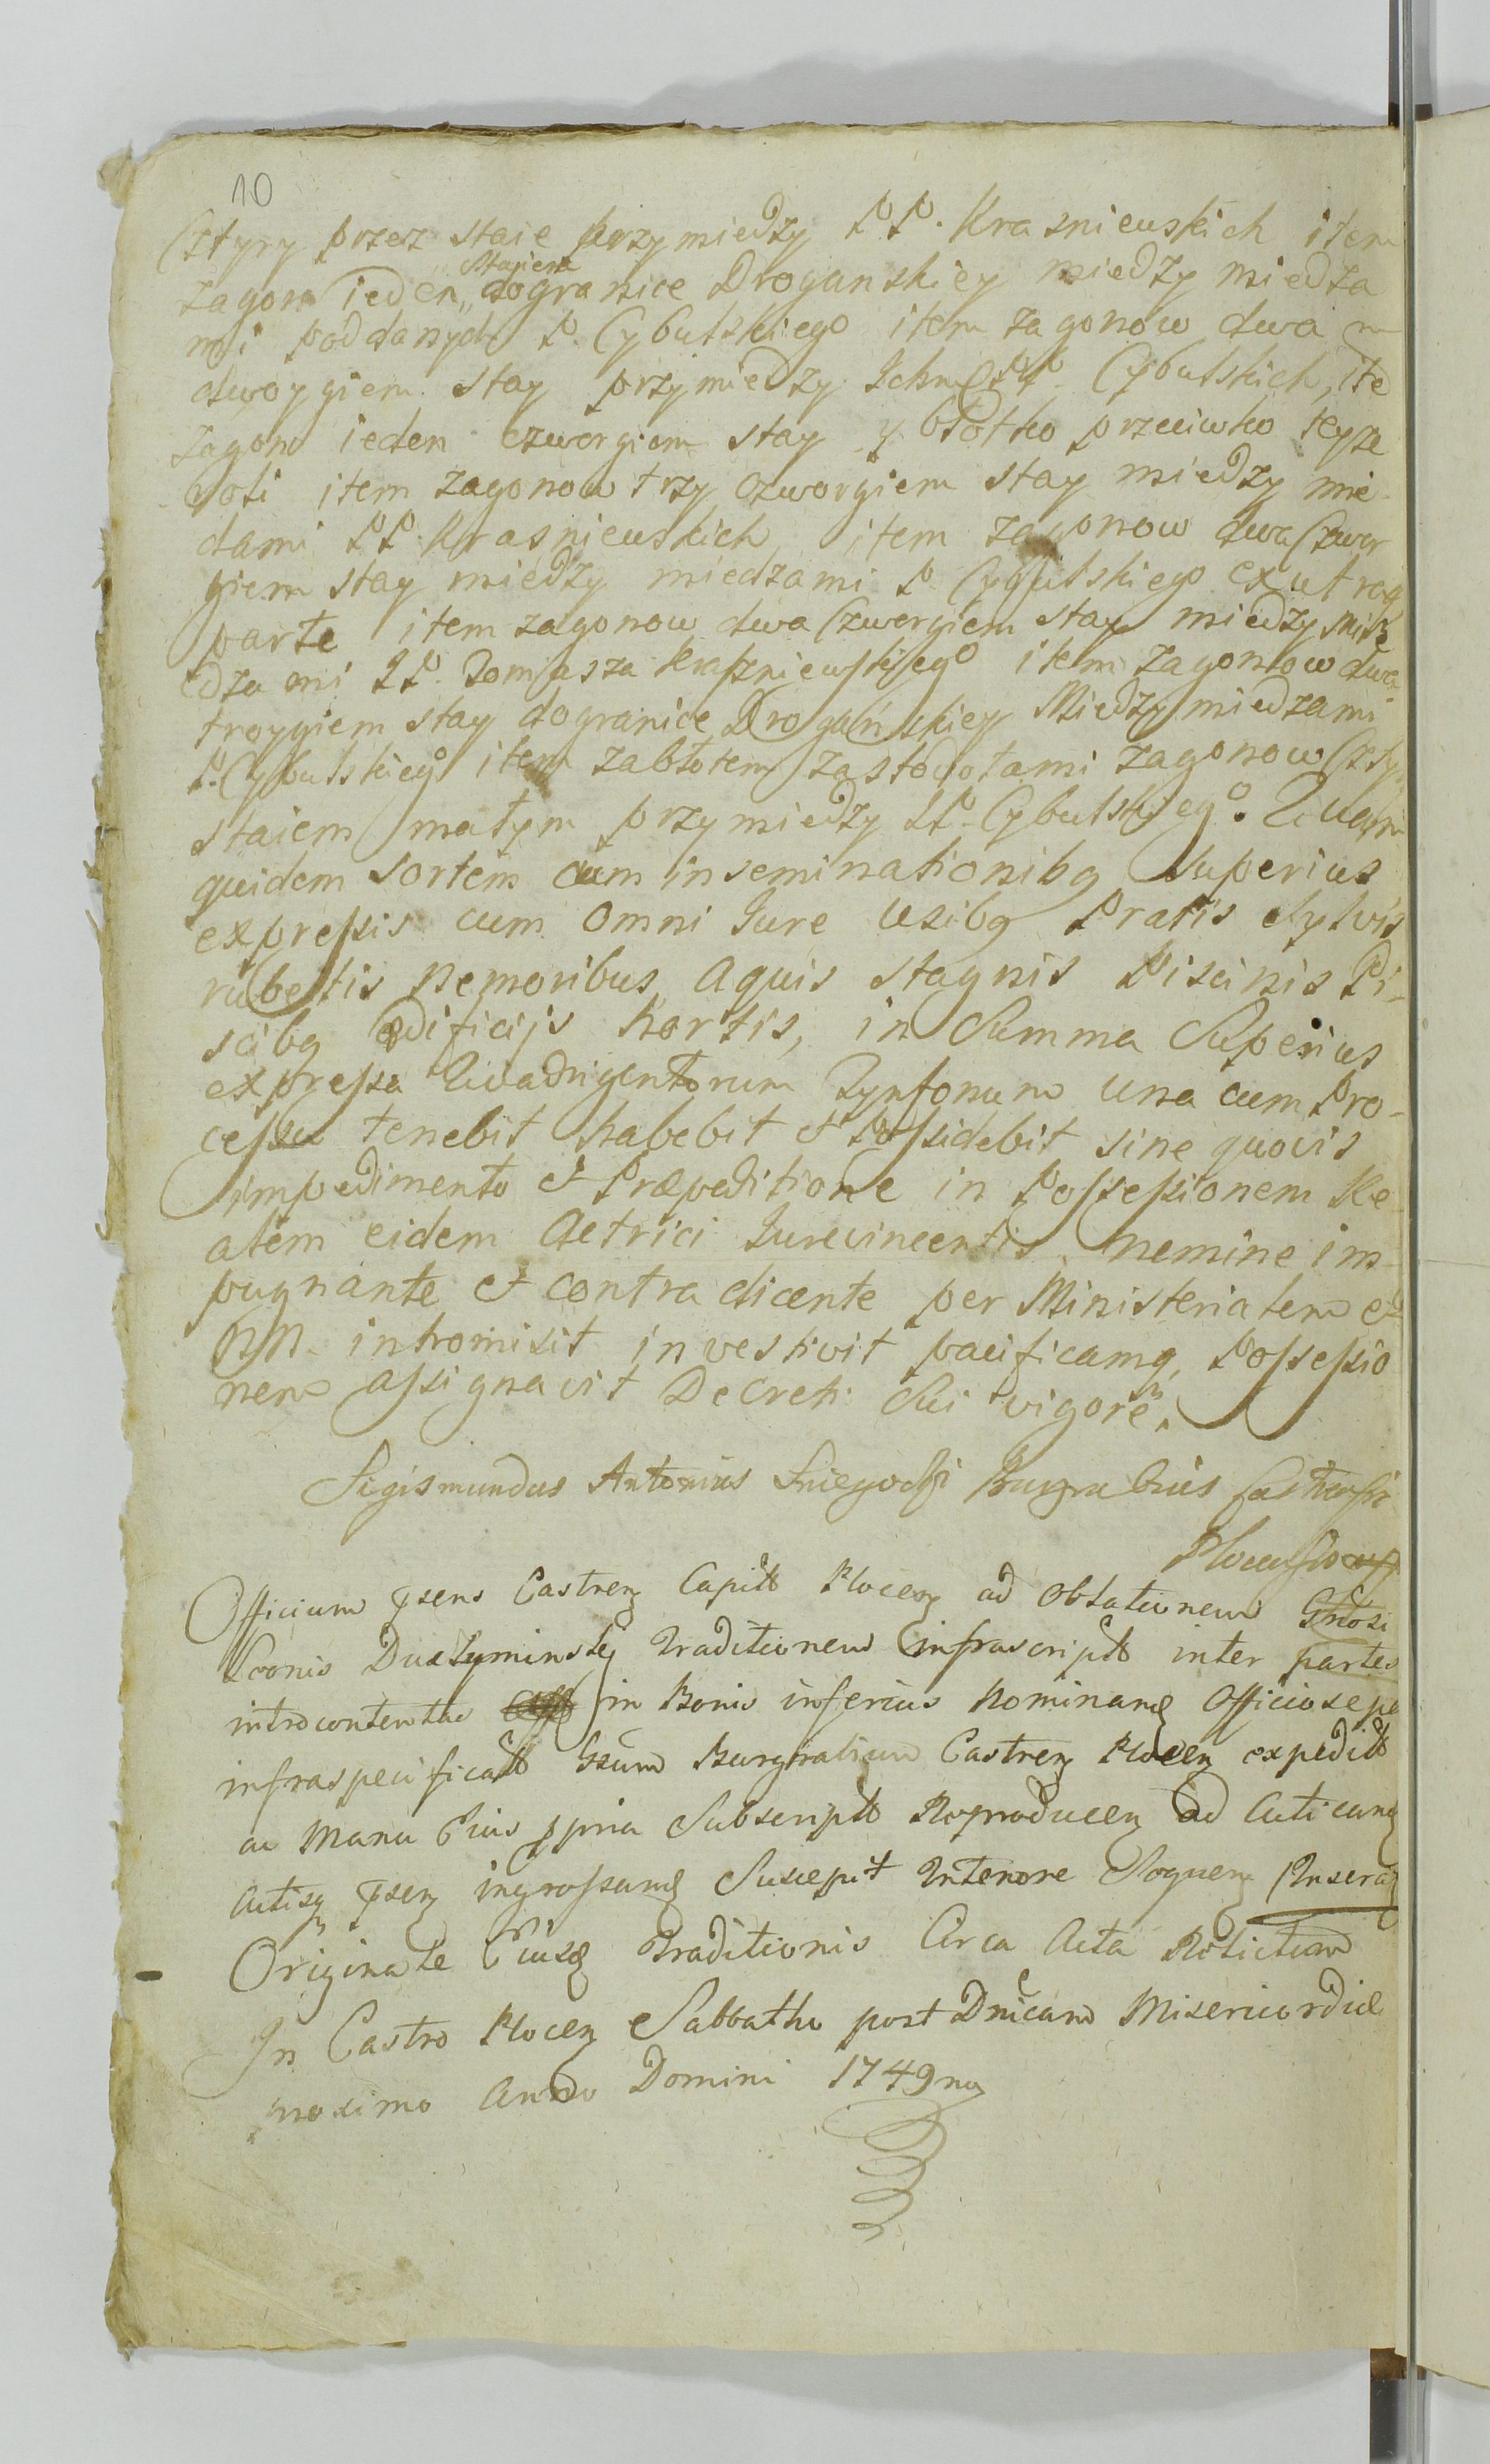 10
Cztyry przez staie przymiedzy PP. Krasniewskich item
zagon ieden „ Staiem dogranice Droganskiey miedzy miedza
mi poddanych P. Cybulskiego item zagonow dwa
dwoygiem stay przymiedzy Ichm PP. Cybulskich, ite
zagon ieden czworgiem stay y błotko przeciwko teyze
roli item zagonow trzy czworgiem stay miedzy mie
dami PP. Krasniewskich item zagonow dwa Czwor
giem stay miedzy miedzami P. Cybulskiego ex utraq
parte item zagonow dwa Czworgiem stay miedzy mie
dza mi PP. Tomasza Kraszniewskiego item zagonow dwa
troygiem stay dogranice Drogańskiey Miedzy miedzami
P. Cybulskieg° item zabłotem zastodołami zagonow Czty
staiem małym przymiedzy PP. Cybulskieg°. Quam
quidem Sortem cum inseminationibq Superius
expressis cum omni Iure Usibq Pratis Sylvis
rubetis Nemoribus Aquis Stagnis Piscinis Pi-
scibq ædificijs hortis, in Summa Superius
expressa Quadrigentorum Tynfonum una cum Pro-
cessu tenebit habebit et Possidebit sine quovis
impedimento et Præpeditione in Possessionem Re-
alem eidem Actrici Iurevincenti nemine im-
pugnante et contra dicente per Ministerialem et
NN. intromisit investivit pacificamq, Possessio
nem assignavit Decreti Sui vigore.
Sigismundus Antonius Burgrabius Castrensis
Officium psens Castren Capitt Plocen ad Oblationem Gnosi
traditionem infrascriptt inter partes
introcontentas in Bonis inferius Nominand Officiose pe
infraspecificatt Gsum Burgrabium Castren Plocen expeditt
ac Manu Eius ppria Subscriptt Reproducen ad Acticand
Actisq psen ingrossand Suscepit Intenore Sequen Inserat
Originale Eiusd Traditionis Circa Acta Relictum
In Castro Plocen Sabbatho post Dnicam Misericordiæ
proximo Anno Domini 1749no